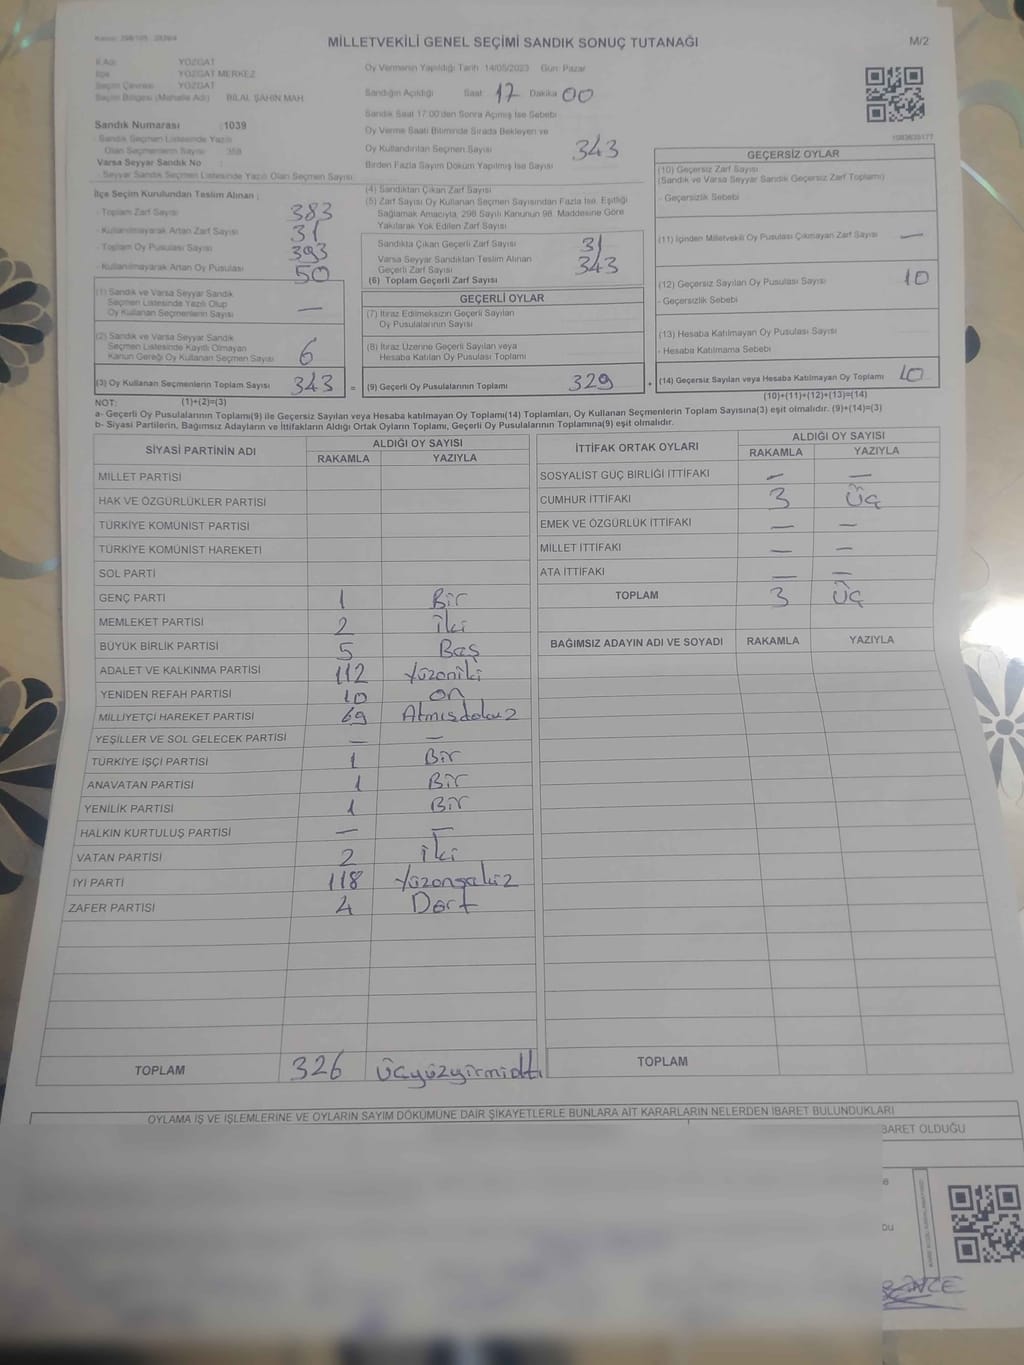 MİLLETVEKİLİ GENEL SEÇİMİ SANDIK SONUÇ TUTANAĞI
M/2
İl Adı YOZGAT
İlçe YOZGAT MERKEZ
Seçim Çevresi YOZGAT
Seçim Bölgesi (Mahalle Adı) BİLAL ŞAHİN MAH.
Sandık Numarası :1039
- Sandık Seçmen Listesinde Yazılı
Olan Seçmenlerin Sayısı 358
Varsa Seyyar Sandık No :
- Seyyar Sandık Seçmen Listesinde Yazılı Olan Seçmen Sayısı:
Oy Vermenin Yapıldığı Tarih :14/05/2023 Gün: Pazar
Sandığın Açıldığı Saat: 17 Dakika 00
Sandık Saat 17:00'den Sonra Açılmış İse Sebebi
Oy Verme Saati Bitiminde Sırada Bekleyen ve
Oy Kullandırılan Seçmen Sayısı 343
Birden Fazla Sayım Döküm Yapılmış İse Sayısı
İlçe Seçim Kurulundan Teslim Alınan ;
- Toplam Zarf Sayısı 383
- Kullanılmayarak Artan Zarf Sayısı 31
- Toplam Oy Pusulası Sayısı 393
- Kullanılmayarak Artan Oy Pusulası 50
(1) Sandık ve Varsa Seyyar Sandık
Seçmen Listesinde Yazılı Olup
Oy Kullanan Seçmenlerin Sayısı —
(2) Sandık ve Varsa Seyyar Sandık
Seçmen Listesinde Kayıtlı Olmayan
Kanun Gereği Oy Kullanan Seçmen Sayısı 6
(3) Oy Kullanan Seçmenlerin Toplam Sayısı 343 =
(4) Sandıktan Çıkan Zarf Sayısı
(5) Zarf Sayısı Oy Kullanan Seçmen Sayısından Fazla İse, Eşitliği
Sağlamak Amacıyla, 298 Sayılı Kanunun 98. Maddesine Göre
Yakılarak Yok Edilen Zarf Sayısı
Sandıkta Çıkan Geçerli Zarf Sayısı 31
Varsa Seyyar Sandıktan Teslim Alınan
Geçerli Zarf Sayısı 343
(6) Toplam Geçerli Zarf Sayısı
GEÇERLİ OYLAR
(7) İtiraz Edilmeksizin Geçerli Sayılan
Oy Pusulalarının Sayısı
(8) İtiraz Üzerine Geçerli Sayılan veya
Hesaba Katılan Oy Pusulası Toplamı
(9) Geçerli Oy Pusulalarının Toplamı 329 +
GEÇERSİZ OYLAR
(10) Geçersiz Zarf Sayısı
(Sandık ve Varsa Seyyar Sandık Geçersiz Zarf Toplamı)
- Geçersizlik Sebebi
(11) İçinden Milletvekili Oy Pusulası Çıkmayan Zarf Sayısı —
(12) Geçersiz Sayılan Oy Pusulası Sayısı 10
- Geçersizlik Sebebi
(13) Hesaba Katılmayan Oy Pusulası Sayısı
- Hesaba Katılmama Sebebi
(14) Geçersiz Sayılan veya Hesaba Katılmayan Oy Toplamı 10
NOT: (1)+(2)=(3)
(10)+(11)+(12)+(13)=(14)
a- Geçerli Oy Pusulalarının Toplamı(9) ile Geçersiz Sayılan veya Hesaba katılmayan Oy Toplamı(14) Toplamları, Oy Kullanan Seçmenlerin Toplam Sayısına(3) eşit olmalıdır. (9)+(14)=(3)
b- Siyasi Partilerin, Bağımsız Adayların ve İttifakların Aldığı Ortak Oyların Toplamı, Geçerli Oy Pusulalarının Toplamına(9) eşit olmalıdır.
SİYASİ PARTİNİN ADI ALDIĞI OY SAYISI
RAKAMLA YAZIYLA
MİLLET PARTİSİ
HAK VE ÖZGÜRLÜKLER PARTİSİ
TÜRKİYE KOMÜNİST PARTİSİ
TÜRKİYE KOMÜNİST HAREKETİ
SOL PARTİ
GENÇ PARTİ 1 Bir
MEMLEKET PARTİSİ 2 İki
BÜYÜK BİRLİK PARTİSİ 5 Beş
ADALET VE KALKINMA PARTİSİ 112 Yüzoniki
YENİDEN REFAH PARTİSİ 10 on
MİLLİYETÇİ HAREKET PARTİSİ 69 Atmışdokuz
YEŞİLLER VE SOL GELECEK PARTİSİ — —
TÜRKİYE İŞÇİ PARTİSİ 1 Bir
ANAVATAN PARTİSİ 1 Bir
YENİLİK PARTİSİ 1 Bir
HALKIN KURTULUŞ PARTİSİ — —
VATAN PARTİSİ 2 İki
İYİ PARTİ 118 Yüzonsekiz
ZAFER PARTİSİ 4 Dört
TOPLAM 326 üçyüzyirmialtı
İTTİFAK ORTAK OYLARI ALDIĞI OY SAYISI
RAKAMLA YAZIYLA
SOSYALİST GÜÇ BİRLİĞİ İTTİFAKI — —
CUMHUR İTTİFAKI 3 Üç
EMEK VE ÖZGÜRLÜK İTTİFAKI — —
MİLLET İTTİFAKI — —
ATA İTTİFAKI — —
TOPLAM 3 Üç
BAĞIMSIZ ADAYIN ADI VE SOYADI RAKAMLA YAZIYLA
TOPLAM
OYLAMA İŞ VE İŞLEMLERİNE VE OYLARIN SAYIM DÖKÜMÜNE DAİR ŞİKAYETLERLE BUNLARA AİT KARARLARIN NELERDEN İBARET BULUNDUKLARI
BARET OLDUĞU